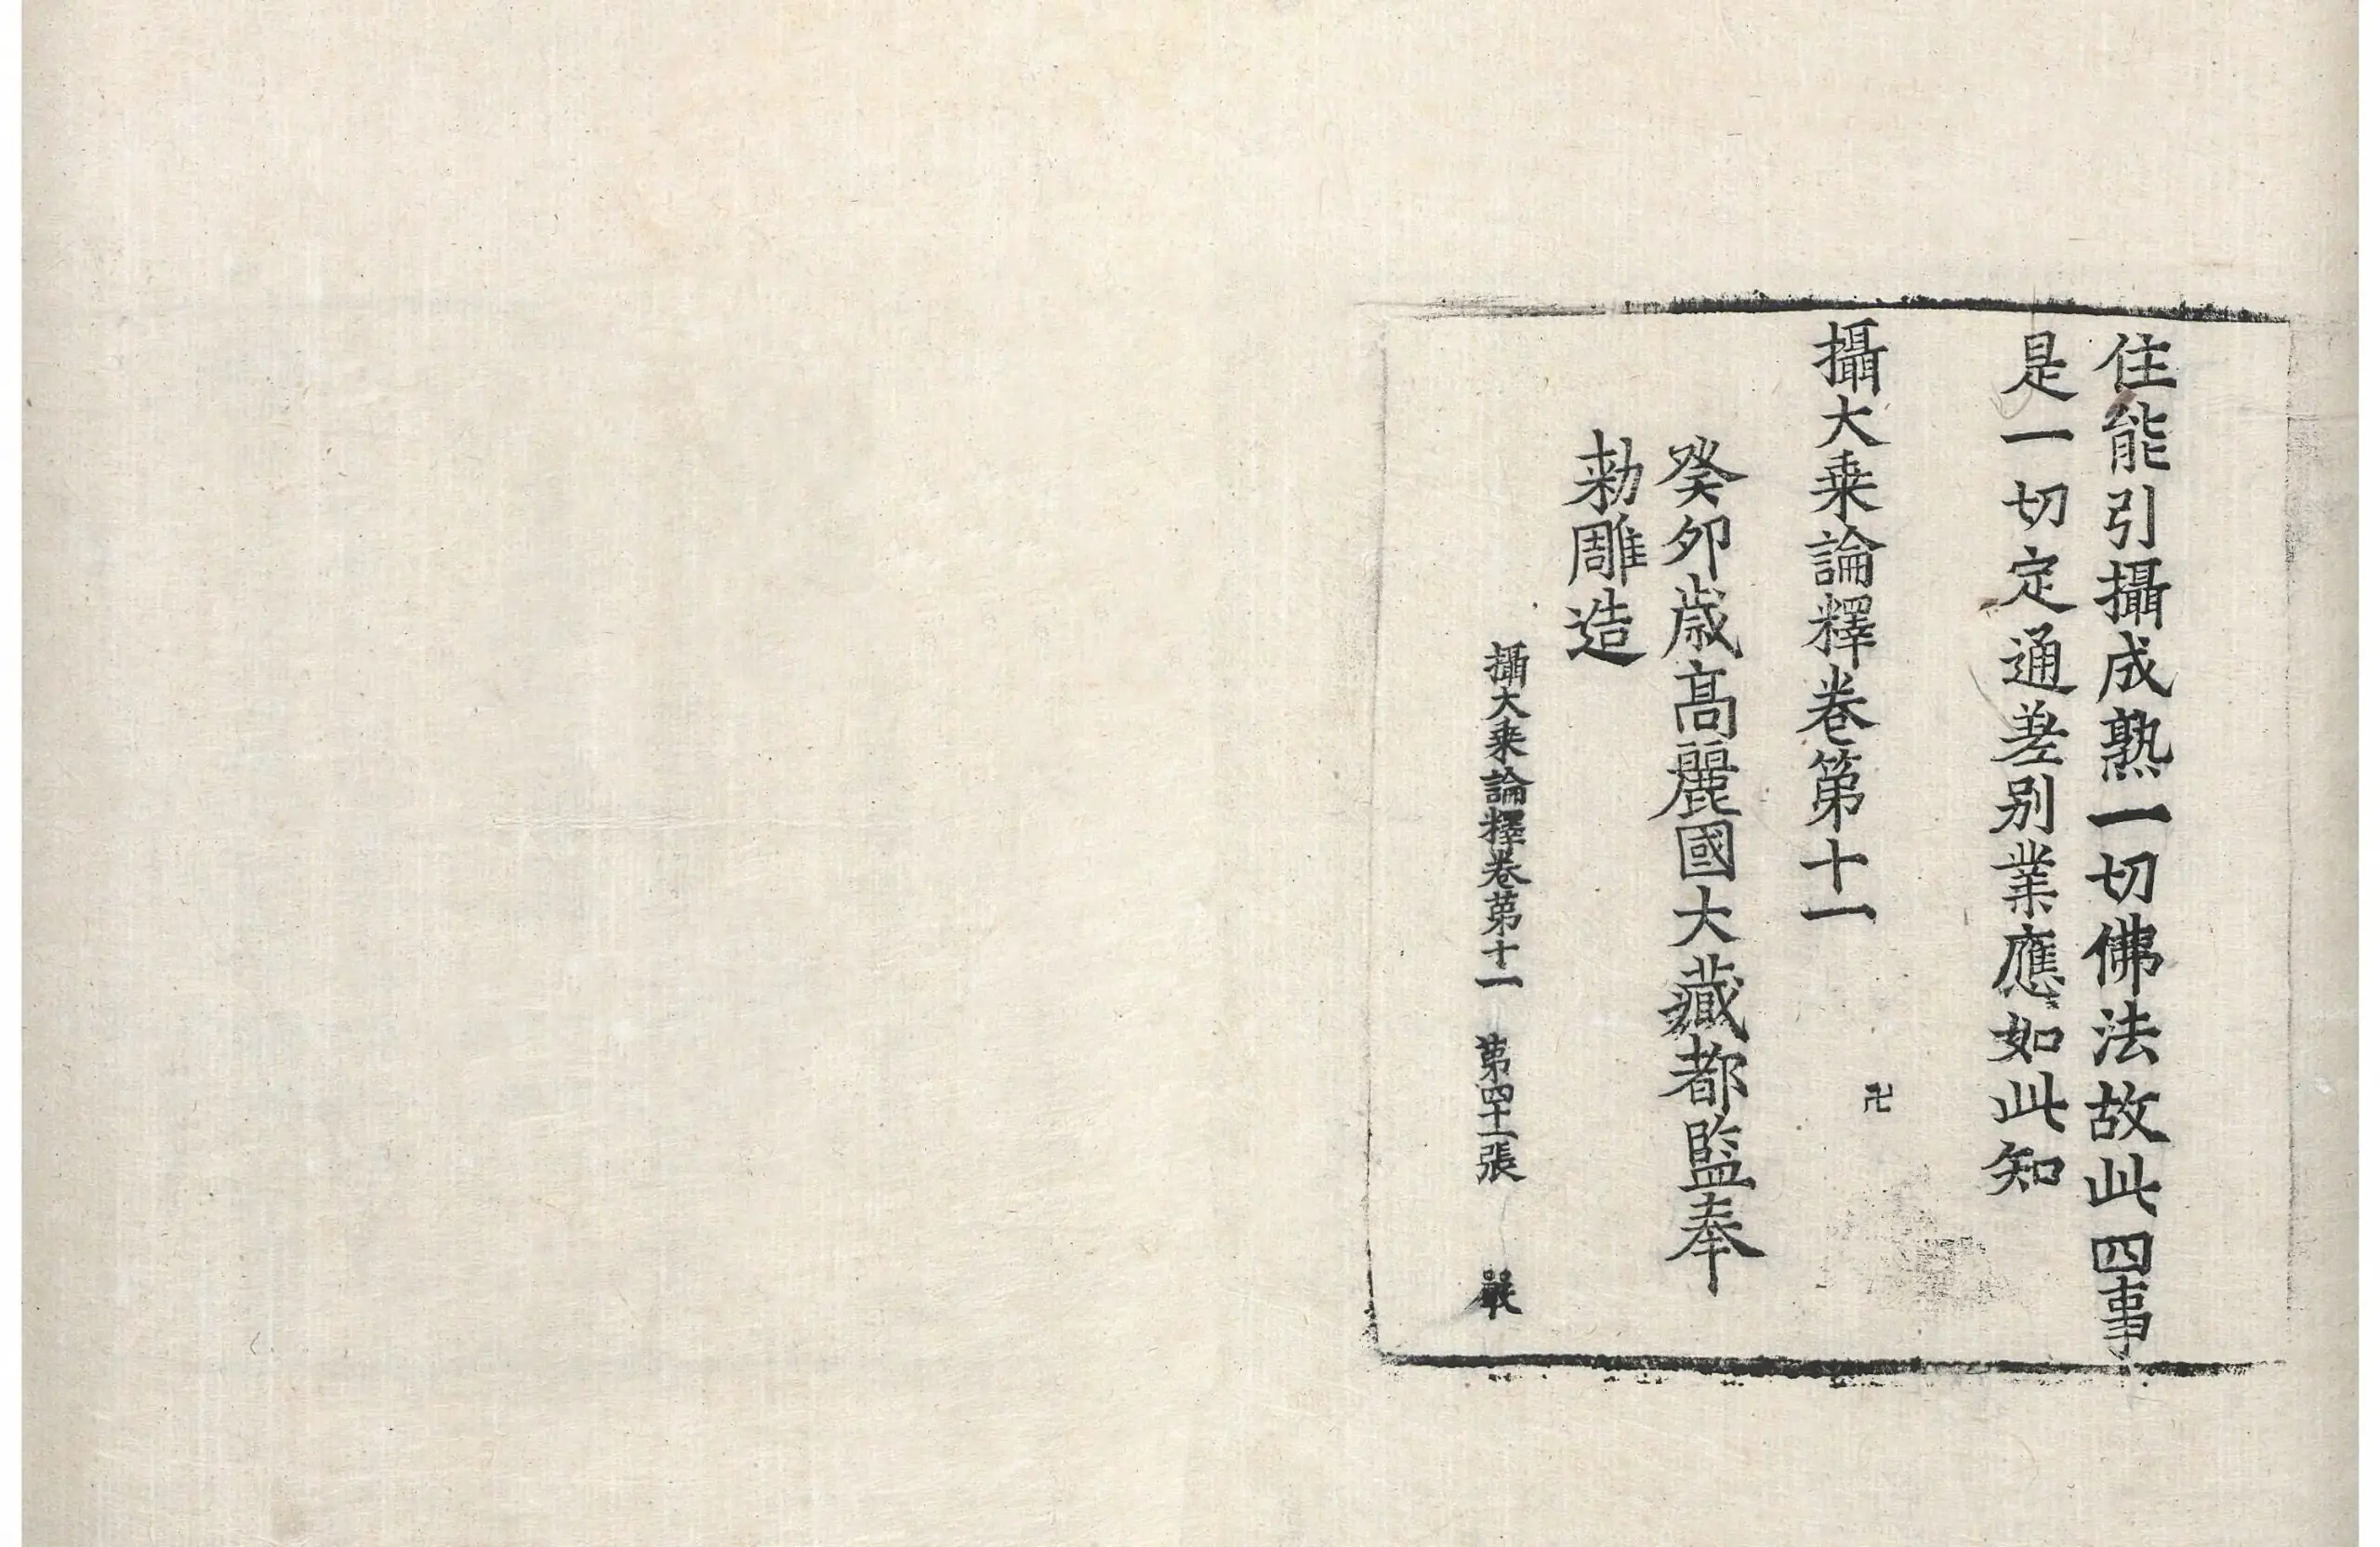 住能引攝成熟一切佛法故此四事
是一切定通差别業應如此知
攝大乗論釋卷第十一
卍
癸夘歳髙麗國大藏都監奉
勅雕造
攝大乗論釋卷第十一 第四十一張 嚴